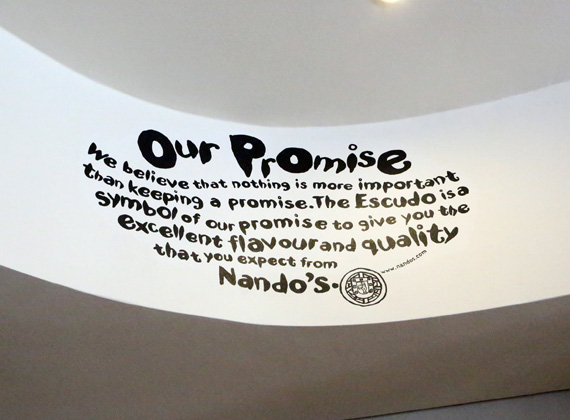 Our Promise
We believe that nothing is more important
than keeping a promise. The Escudo is a
symbol of our promise to give you the
excellent flavour and quality
that you expect from
Nando's.
www.nandos.com